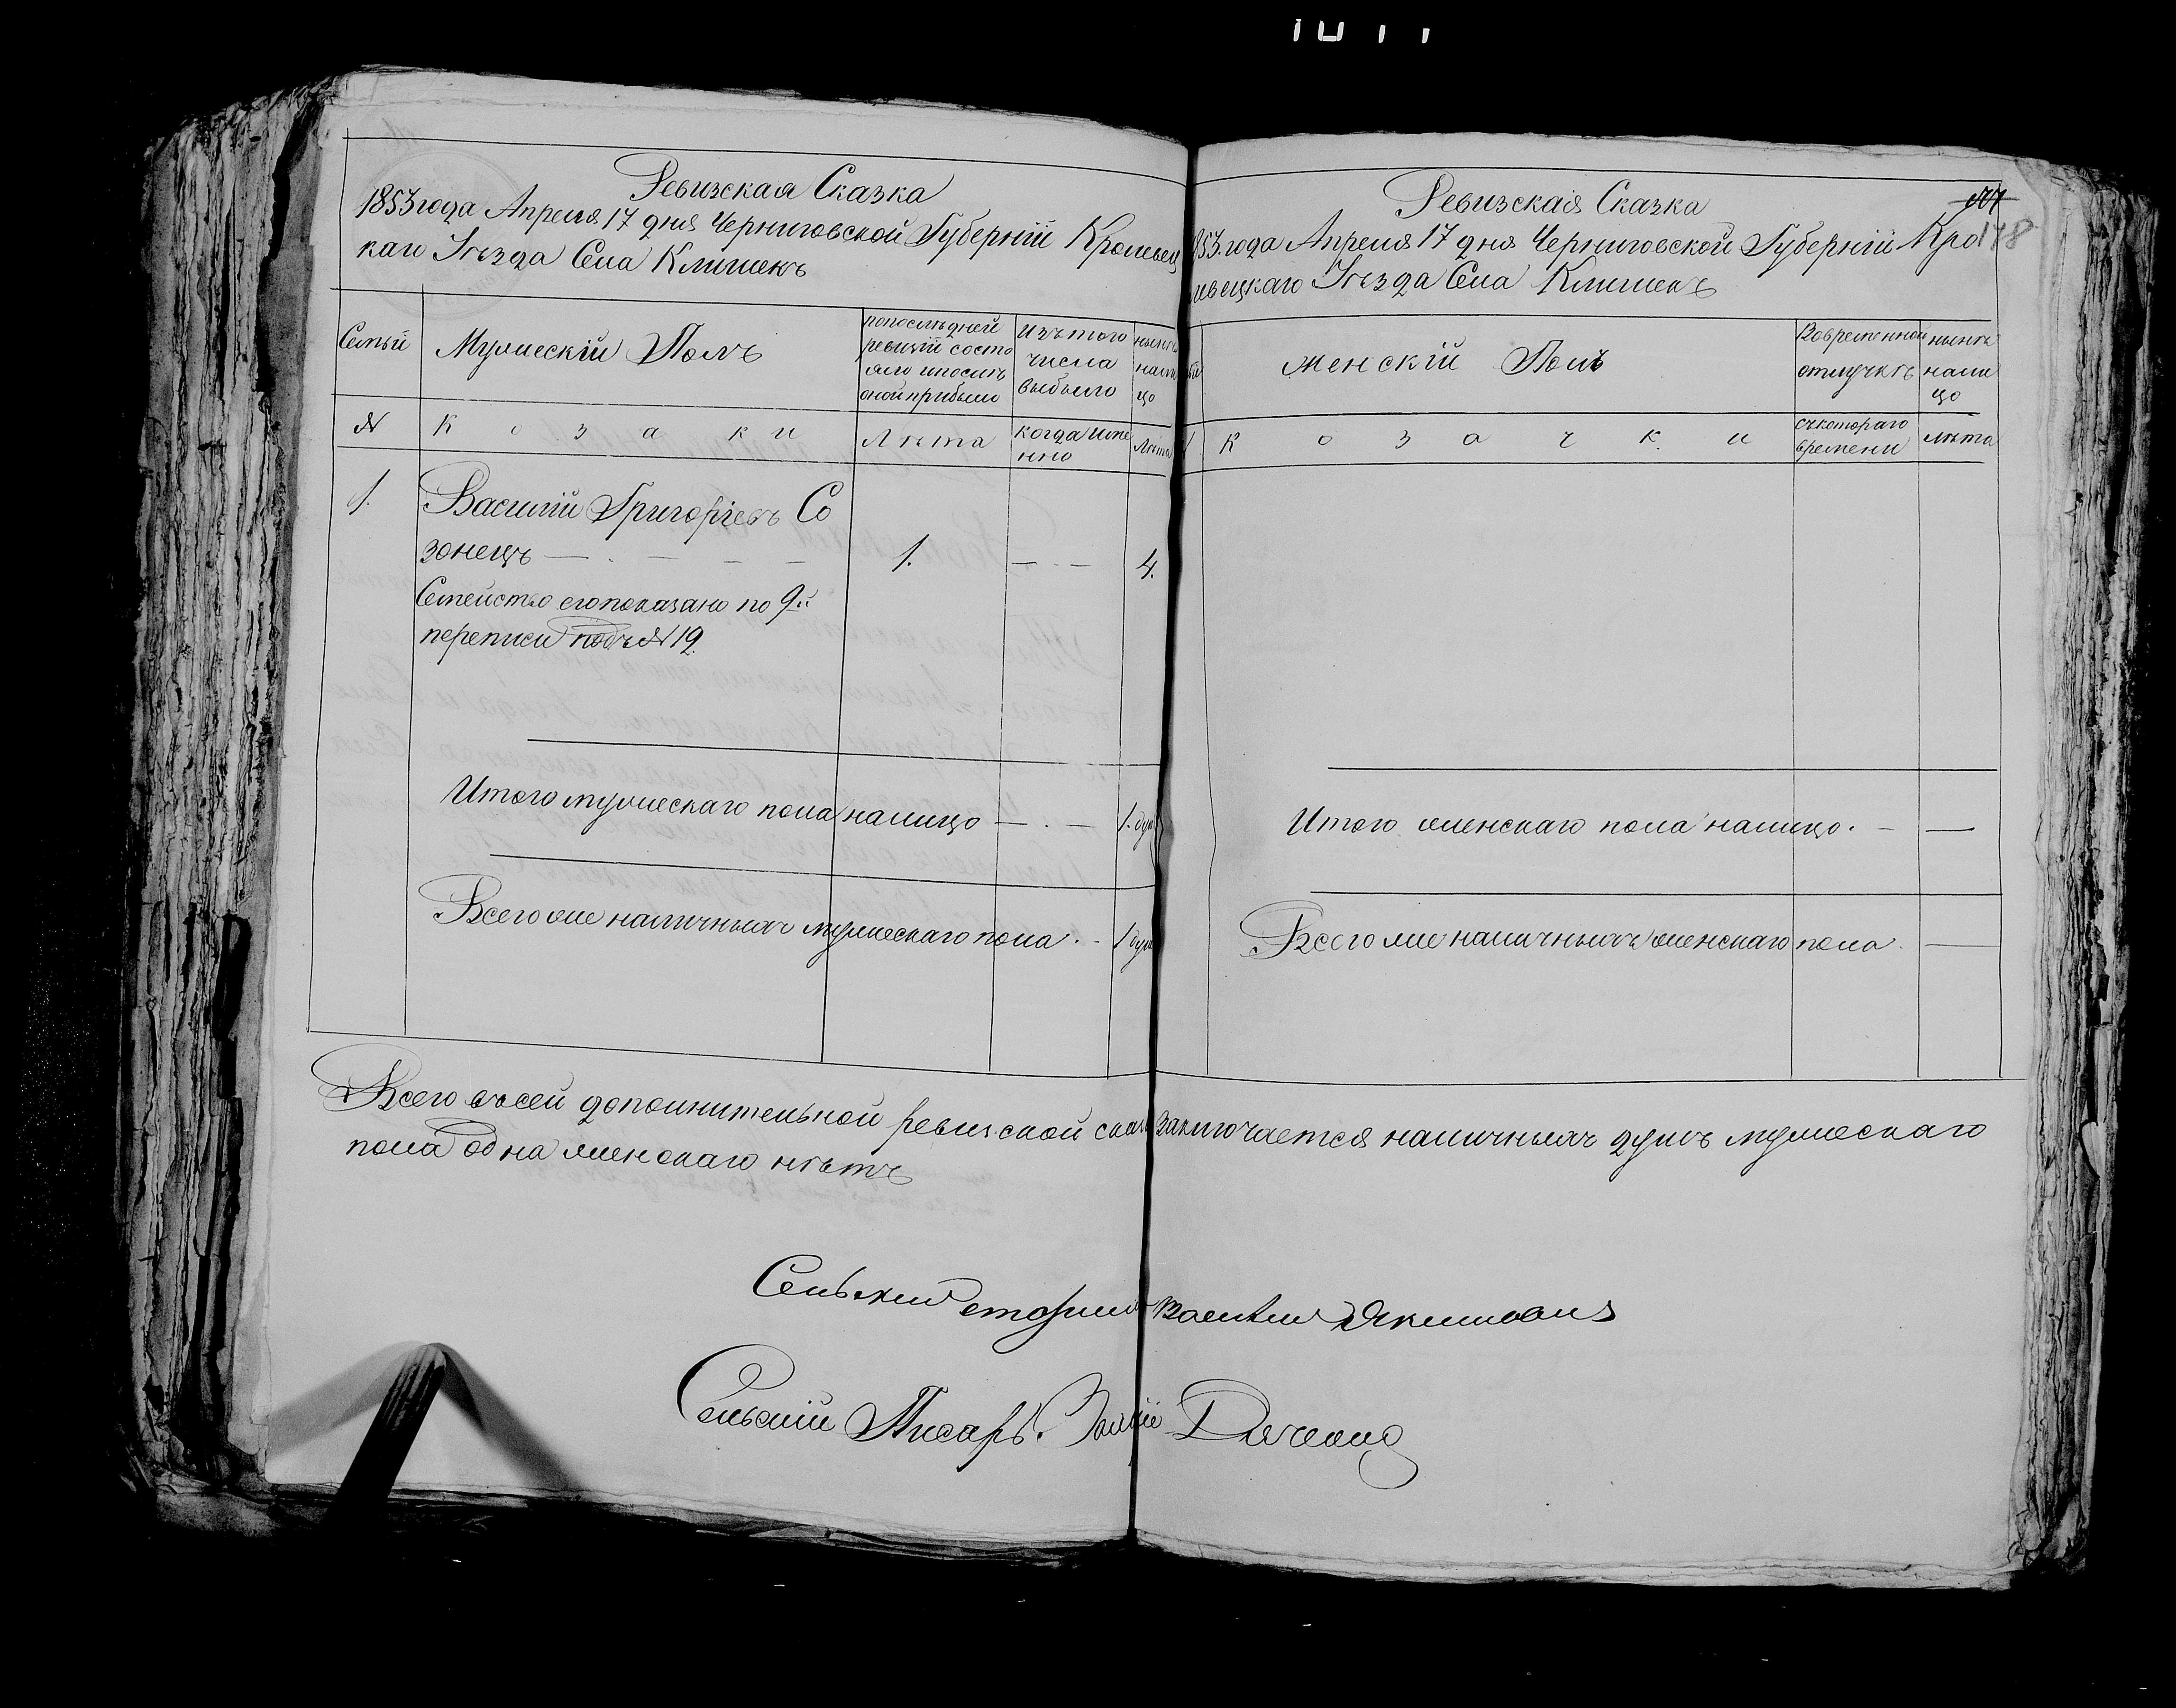 Ревизская Сказка
1853 года Апреля 17 дня Черниговской Губерніи Кролевец
каго Уѣзда Села Клишекъ
Семьи
Мужескій Полъ
по последней
ревизіи состо
яло и послѣ
оной прибыло
Изъ того
числа
выбыло
нынѣ
нали
цо
№
К о з а к и
Лѣта
когда име
нно
Лѣта
1.
Василій Григорьевъ Со
зонецъ — . — — —
1.
— . —
4.
Семейство его показано по 9й
переписи подъ № 19.
Итого мужескаго пола налицо — . — 1. душ
Всего же наличныхъ мужескаго пола . - 1 душ
Ревизская Сказка
853. года Апреля 17 дня Черниговской Губерніи Кро
левецкаго Уѣзда Села Клишекъ
148
женскій Полъ
Во временной
отлучкѣ
нынѣ
нали
цо
К о з а ч к и
съ котораго
времени
лѣта
Итого женскаго пола налицо . - —
Всего же наличныхъ женскаго пола . —
Всего въ сей дополнительной ревизской сказ заключается наличныхъ душъ мужескаго
пола одна женскаго нѣтъ
Сельский старшина
Сельский Писарь.